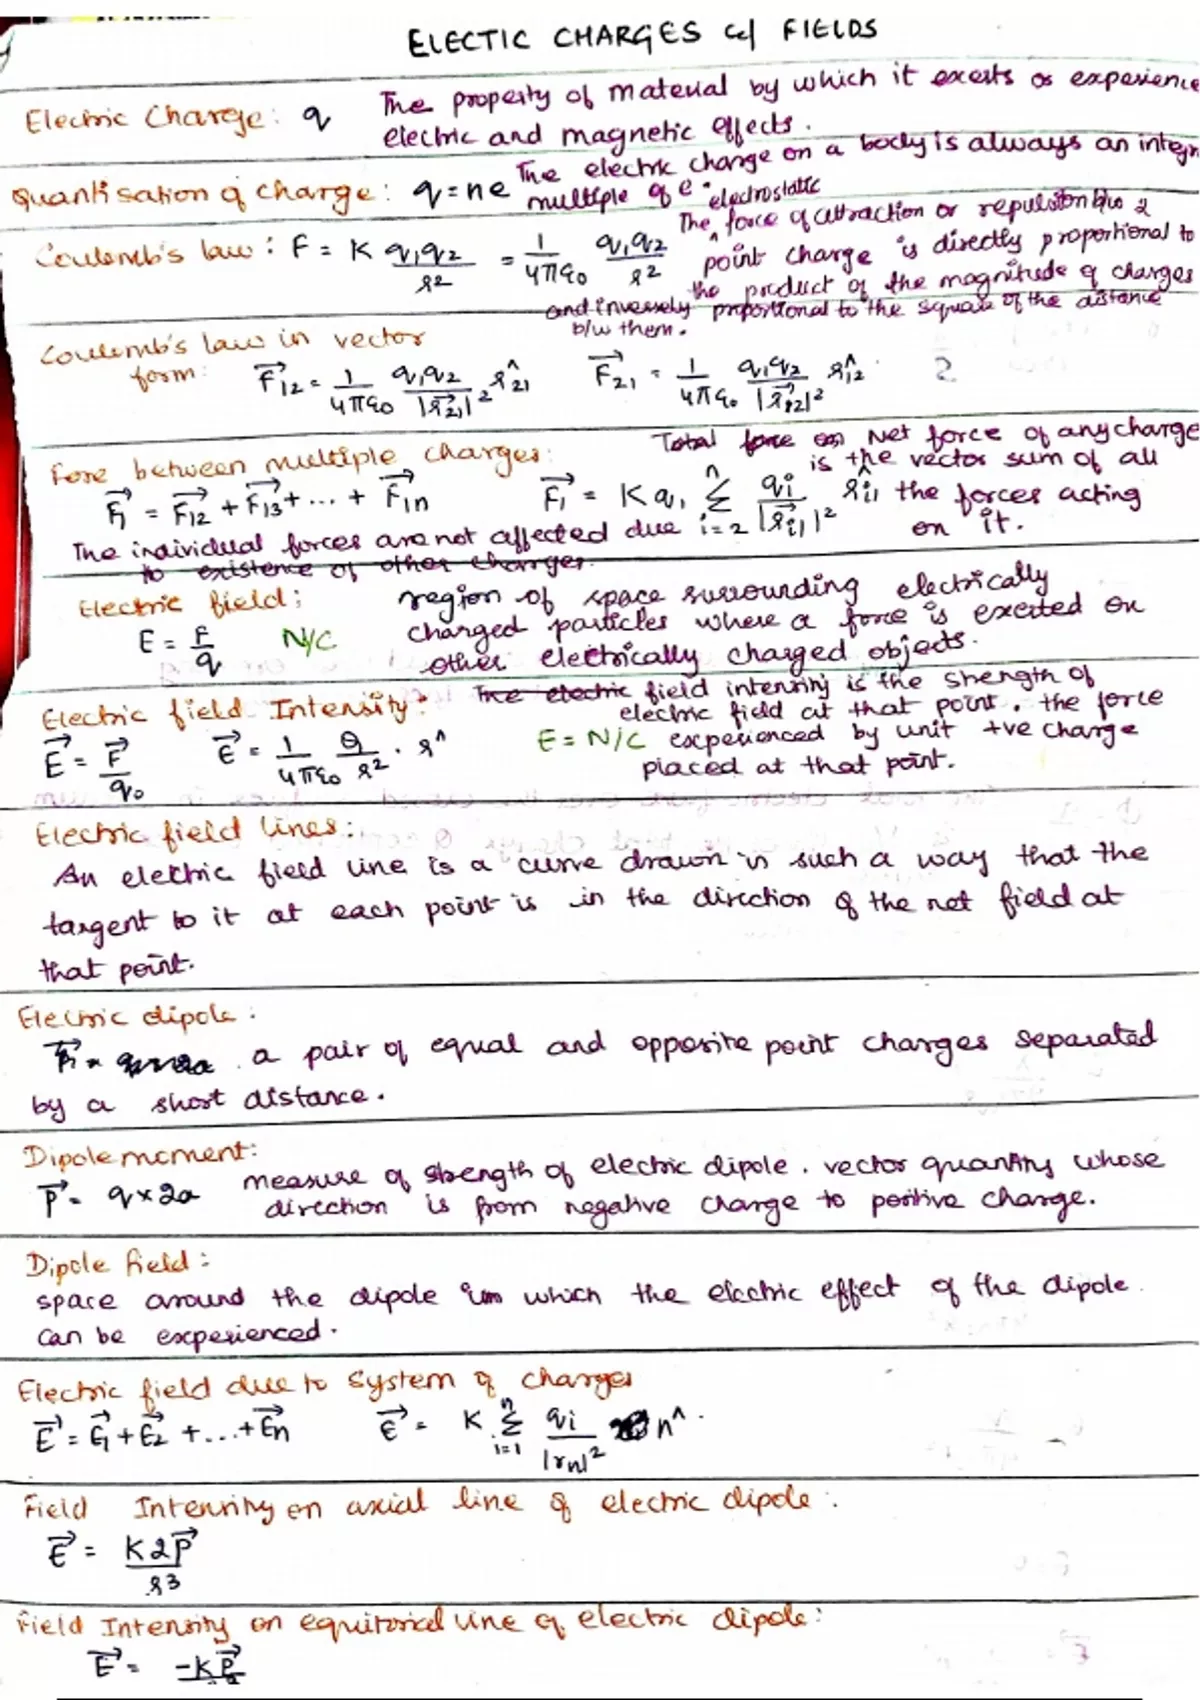 ELECTIC CHARGES & FIELDS
Electric Charge: q The property of material by which it exerts or experience
electric and magnetic effects.
Quantisation of charge: q = ne The electric charge on a body is always an integr
multiple of e.
Coulomb's law: F = K q₁q₂/r² = 1/4πε₀ q₁q₂/r² The electrostatic force of attraction or repulsion b/w 2
point charge is directly proportional to
the product of the magnitude of charges
and inversely proportional to the square of the distance
b/w them.
Coulomb's law in vector
form: F⃗₁₂ = 1/4πε₀ q₁q₂/|r⃗₂₁|² r̂₂₁ F⃗₂₁ = 1/4πε₀ q₁q₂/|r⃗₁₂|² r̂₁₂
Fore between multiple charges: Total force or Net force of any charge
is the vector sum of all
F⃗₁ = F⃗₁₂ + F⃗₁₃ + ... + F⃗₁n F⃗₁ = Kq₁ Σⁿᵢ₌₂ qᵢ/|r⃗ᵢ₁|² r̂ᵢ₁ the forces acting
on it.
The individual forces are not affected due
to existence of other charges.
Electric field: region of space surrounding electrically
E = F/q N/C charged particles where a force is exerted on
other electrically charged objects.
Electric field Intensity: The electric field intensity is the strength of
electric field at that point. the force
E⃗ = F⃗/q₀ E⃗ = 1/4πε₀ Q/r² . r̂ E = N/C experienced by unit +ve charge
placed at that point.
Electric field lines:
An electric field line is a curve drawn in such a way that the
tangent to it at each point is in the direction of the net field at
that point.
Electric dipole:
a pair of equal and opposite point charges separated
by a short distance.
Dipole moment:
P⃗ = q × 2a measure of strength of electric dipole. vector quantity whose
direction is from negative charge to positive charge.
Dipole field:
space around the dipole in which the electric effect of the dipole
can be experienced.
Electric field due to system of charges
E⃗ = E⃗₁ + E⃗₂ + ... + E⃗n E⃗ = K Σⁿᵢ₌₁ qᵢ/|rn|² n̂.
Field Intensity on axial line of electric dipole:
E⃗ = K2P⃗/r³
Field Intensity on equitorial line of electric dipole:
E⃗ = -KP⃗